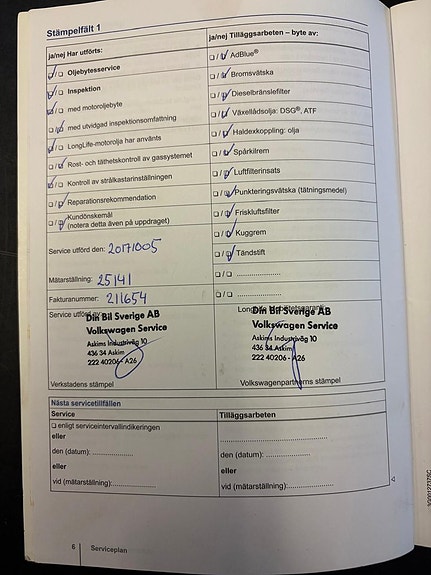 Stämpelfält 1
ja/nej Har utförts:
☑/☐ Oljebytesservice
☑/☐ Inspektion
☑/☐ med motoroljebyte
☐/☑ med utvidgad inspektionsomfattning
☑/☐ LongLife-motorolja har använts
☐/☑ Rost- och täthetskontroll av gassystemet
☑/☐ Kontroll av strålkastarinställningen
☐/☑ Reparationsrekommendation
☐/☑ Kundönskemål
(notera detta även på uppdraget)
Service utförd den: 20171005
Mätarställning: 25141
Fakturanummer: 211654
Service utförd av:
Din Bil Sverige AB
Volkswagen Service
Askims Industriväg 10
436 34 Askim
222 40206 - A26
Verkstadens stämpel
ja/nej Tilläggsarbeten – byte av:
☐/☑ AdBlue®
☐/☑ Bromsvätska
☐/☑ Dieselbränslefilter
☐/☑ Växellådsolja: DSG®, ATF
☐/☑ Haldexkoppling: olja
☐/☑ Spårkilrem
☐/☑ Luftfilterinsats
☐/☑ Punkteringsvätska (tätningsmedel)
☐/☑ Friskluftsfilter
☐/☑ Kuggrem
☐/☑ Tändstift
☐/☐ ....................
☐/☐ ....................
Din Bil Sverige AB
Volkswagen Service
Askims Industriväg 10
436 34 Askim
222 40206 - A26
Volkswagenpartnerns stämpel
Nästa servicetillfällen
Service
☐ enligt serviceintervallindikeringen
eller
den (datum): ....................
eller
vid (mätarställning):....................
Tilläggsarbeten
........................................
den (datum): ....................
eller
vid (mätarställning):....................
6 Serviceplan